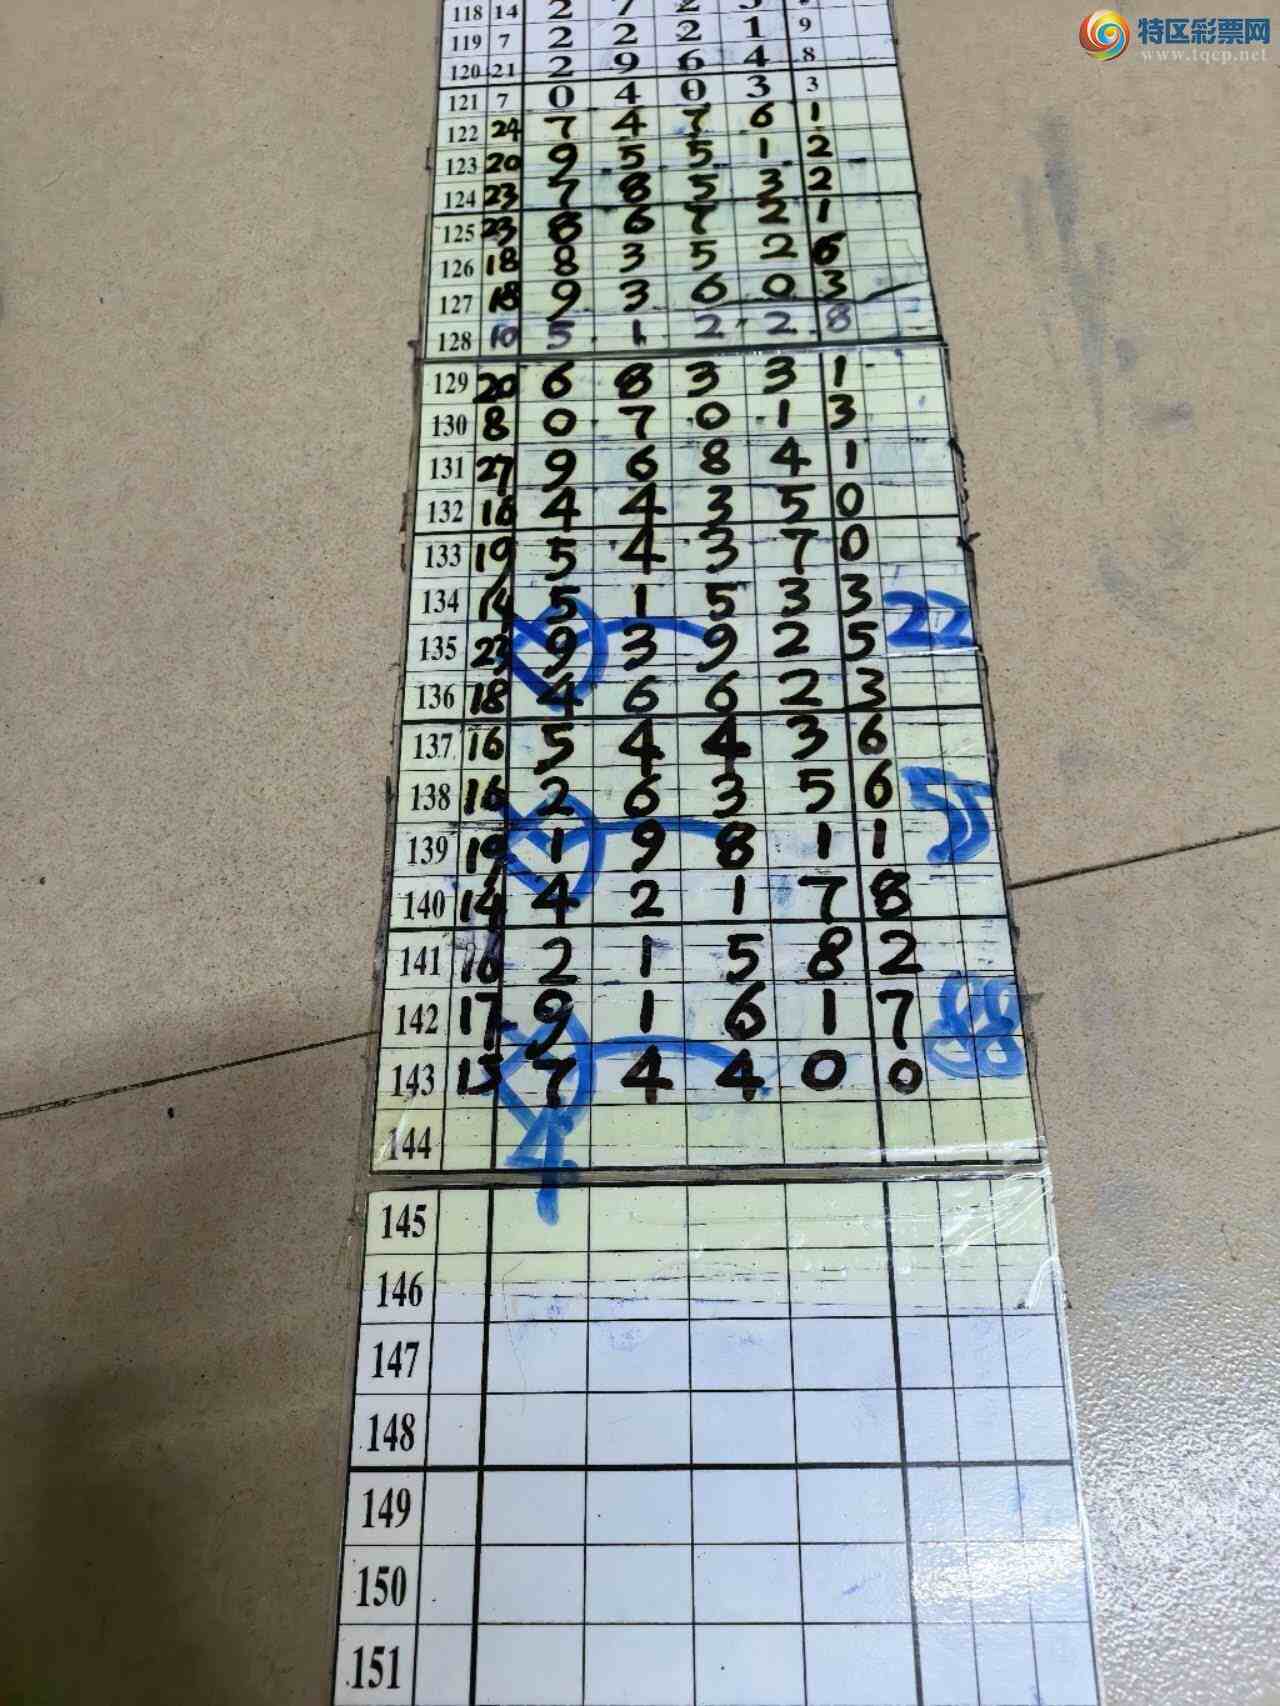 特区彩票网
www.tqcp.net
118 14 2 7 2 3
119 7 2 2 2 1 9
120 21 2 9 6 4 8
121 7 0 4 0 3 3
122 24 7 4 7 6 1
123 20 9 5 5 1 2
124 23 7 8 5 3 2
125 23 8 6 7 2 1
126 18 8 3 5 2 6
127 18 9 3 6 0 3
128 10 5 1 2 2 8
129 20 6 8 3 3 1
130 8 0 7 0 1 3
131 27 9 6 8 4 1
132 16 4 4 3 5 0
133 19 5 4 3 7 0
134 14 5 1 5 3 3
22
135 23 9 3 9 2 5
136 18 4 6 6 2 3
137 16 5 4 4 3 6
138 16 2 6 3 5 6
55
139 19 1 9 8 1 1
140 14 4 2 1 7 8
141 16 2 1 5 8 2
142 17 9 1 6 1 7
88
143 15 7 4 4 0 0
144 4
145
146
147
148
149
150
151